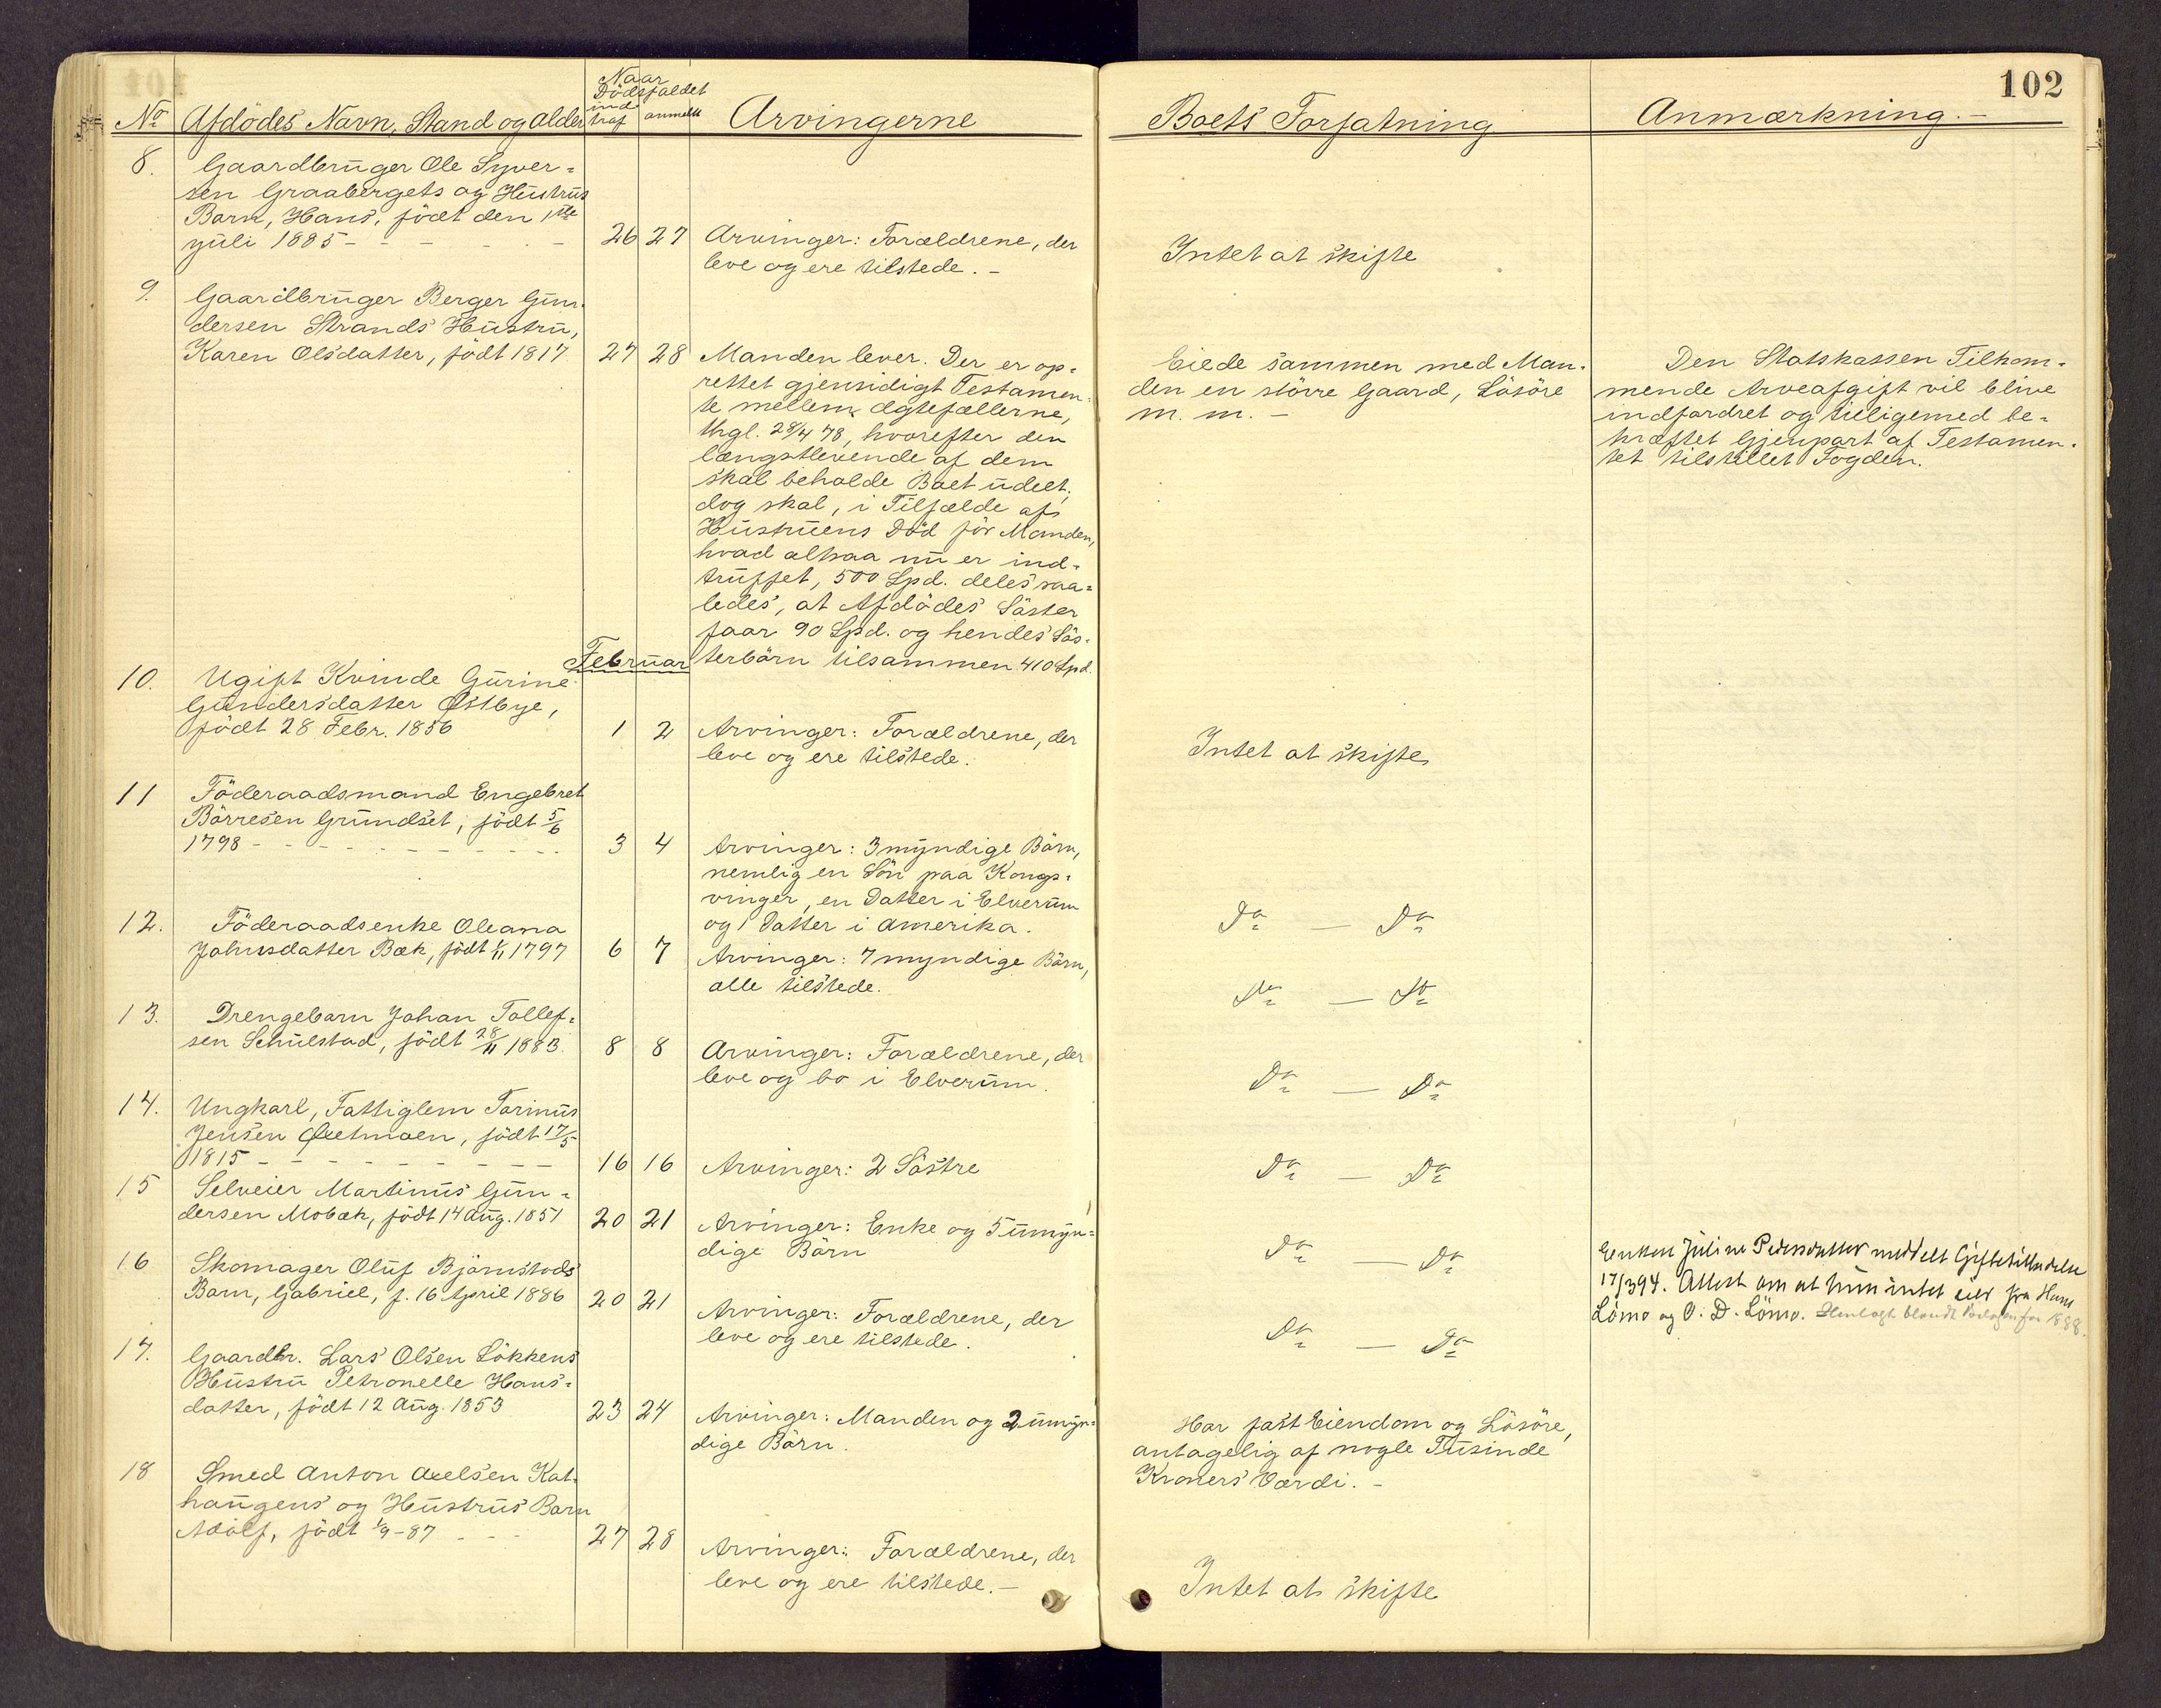 102
No Afdödes Navn, Stand og Alder
Naar
Dödsfaldet
ind
traf anmeldt
Arvingerne
Boets Forfatning
Anmærkning.-
8. Gaardbruger Ole Syver-
sen Graabergets og Hustrus
Barn, Hans, födt den 1ste
Juli 1885 - - - - - 26 27
Arvinger: Forældrene, der
leve og ere tilstede. -
Intet at skifte
9. Gaardbruger Berger Gun-
dersen Strands Hustru,
Karen Olsdatter, födt 1817 27 28
Manden lever. Der er op-
rettet gjensidigt Testamen-
te mellem Ægtefællerne,
thgl. 28/4 78, hvorefter den
længstlevende af dem
skal beholde Boet udelt;
dog skal, i Tilfælde af
Hustruens Död för Manden,
hvad altsaa nu er ind-
truffet, 500 Spd. deles saa-
ledes, at Afdödes Söster
faar 90 Spd. og hendes Sös-
terbörn tilsammen 410 Spd.
Eiede sammen med Man-
den en större Gaard, Lösöre
m. m. -
Den Statskassen Tilkom-
mende Arveafgift vil blive
indfordret og tilligemed be-
kræftet Gjenpart af Testamen-
tet tilstillet Fogden.
Februar
10. Ugift Kvinde Gurine
Gundersdatter Østbye,
födt 28 Febr. 1856 1 2
Arvinger: Forældrene, der
leve og ere tilstede.
Intet at skifte
11 Föderaadsmand Engebret
Börresen Grundset, födt 5/6
1798 - - - - - - - - - 3 4
Arvinger: 3 myndige Börn,
nemlig en Sön paa Kongs-
vinger, en Datter i Elverum
og 1 Datter i Amerika.
Do - Do
12. Föderaadsenke Oleana
Johnsdatter Bæk, födt 1/11 1797 6 7
Arvinger: 7 myndige Börn,
alle tilstede.
Do - Do
13. Drengebarn Johan Tollef-
sen Schulstad, födt 28/11 1883. 8 8
Arvinger: Forældrene, der
leve og bo i Elverum.
Do - Do
14. Ungkarl, Fattiglem Torinus
Jensen födt 17/5
1815 - - - - - - - - - 16 16
Arvinger: 2 Söstre
Do - Do
15 Selveier Martinus Gun-
dersen Mobæk, födt 14 Aug. 1851 20 21
Arvinger: Enke og 5 umyn-
dige Börn
Do - Do
Enken Juline Pedersdatter meddelt Giftetilladelse
17/3 94. Attest om at hun intet eier fra Hans
Lömo og O. D. Lömo. Henlagt blandt for 1888.
16 Skomager Oluf Björnstads
Barn, Gabriel, f. 16 April 1886 20 21
Arvinger: Forældrene, der
leve og ere tilstede.
Do - Do
17. Gaardbr. Lars Olsen Lökkens
Hustru Petronelle Hans-
datter, födt 12 Aug. 1853 23 24
Arvinger: Manden og 2 umyn-
dige Börn.
Har fast Eiendom og Lösöre,
antagelig af nogle Tusinde
Kroners Værdi. -
18 Smed Anton Axelsen Kat-
haugens og Hustrus Barn
Adolf, födt 1/9-87 - - - 27 28
Arvinger: Forældrene, der
leve og ere tilstede. -
Intet at skifte